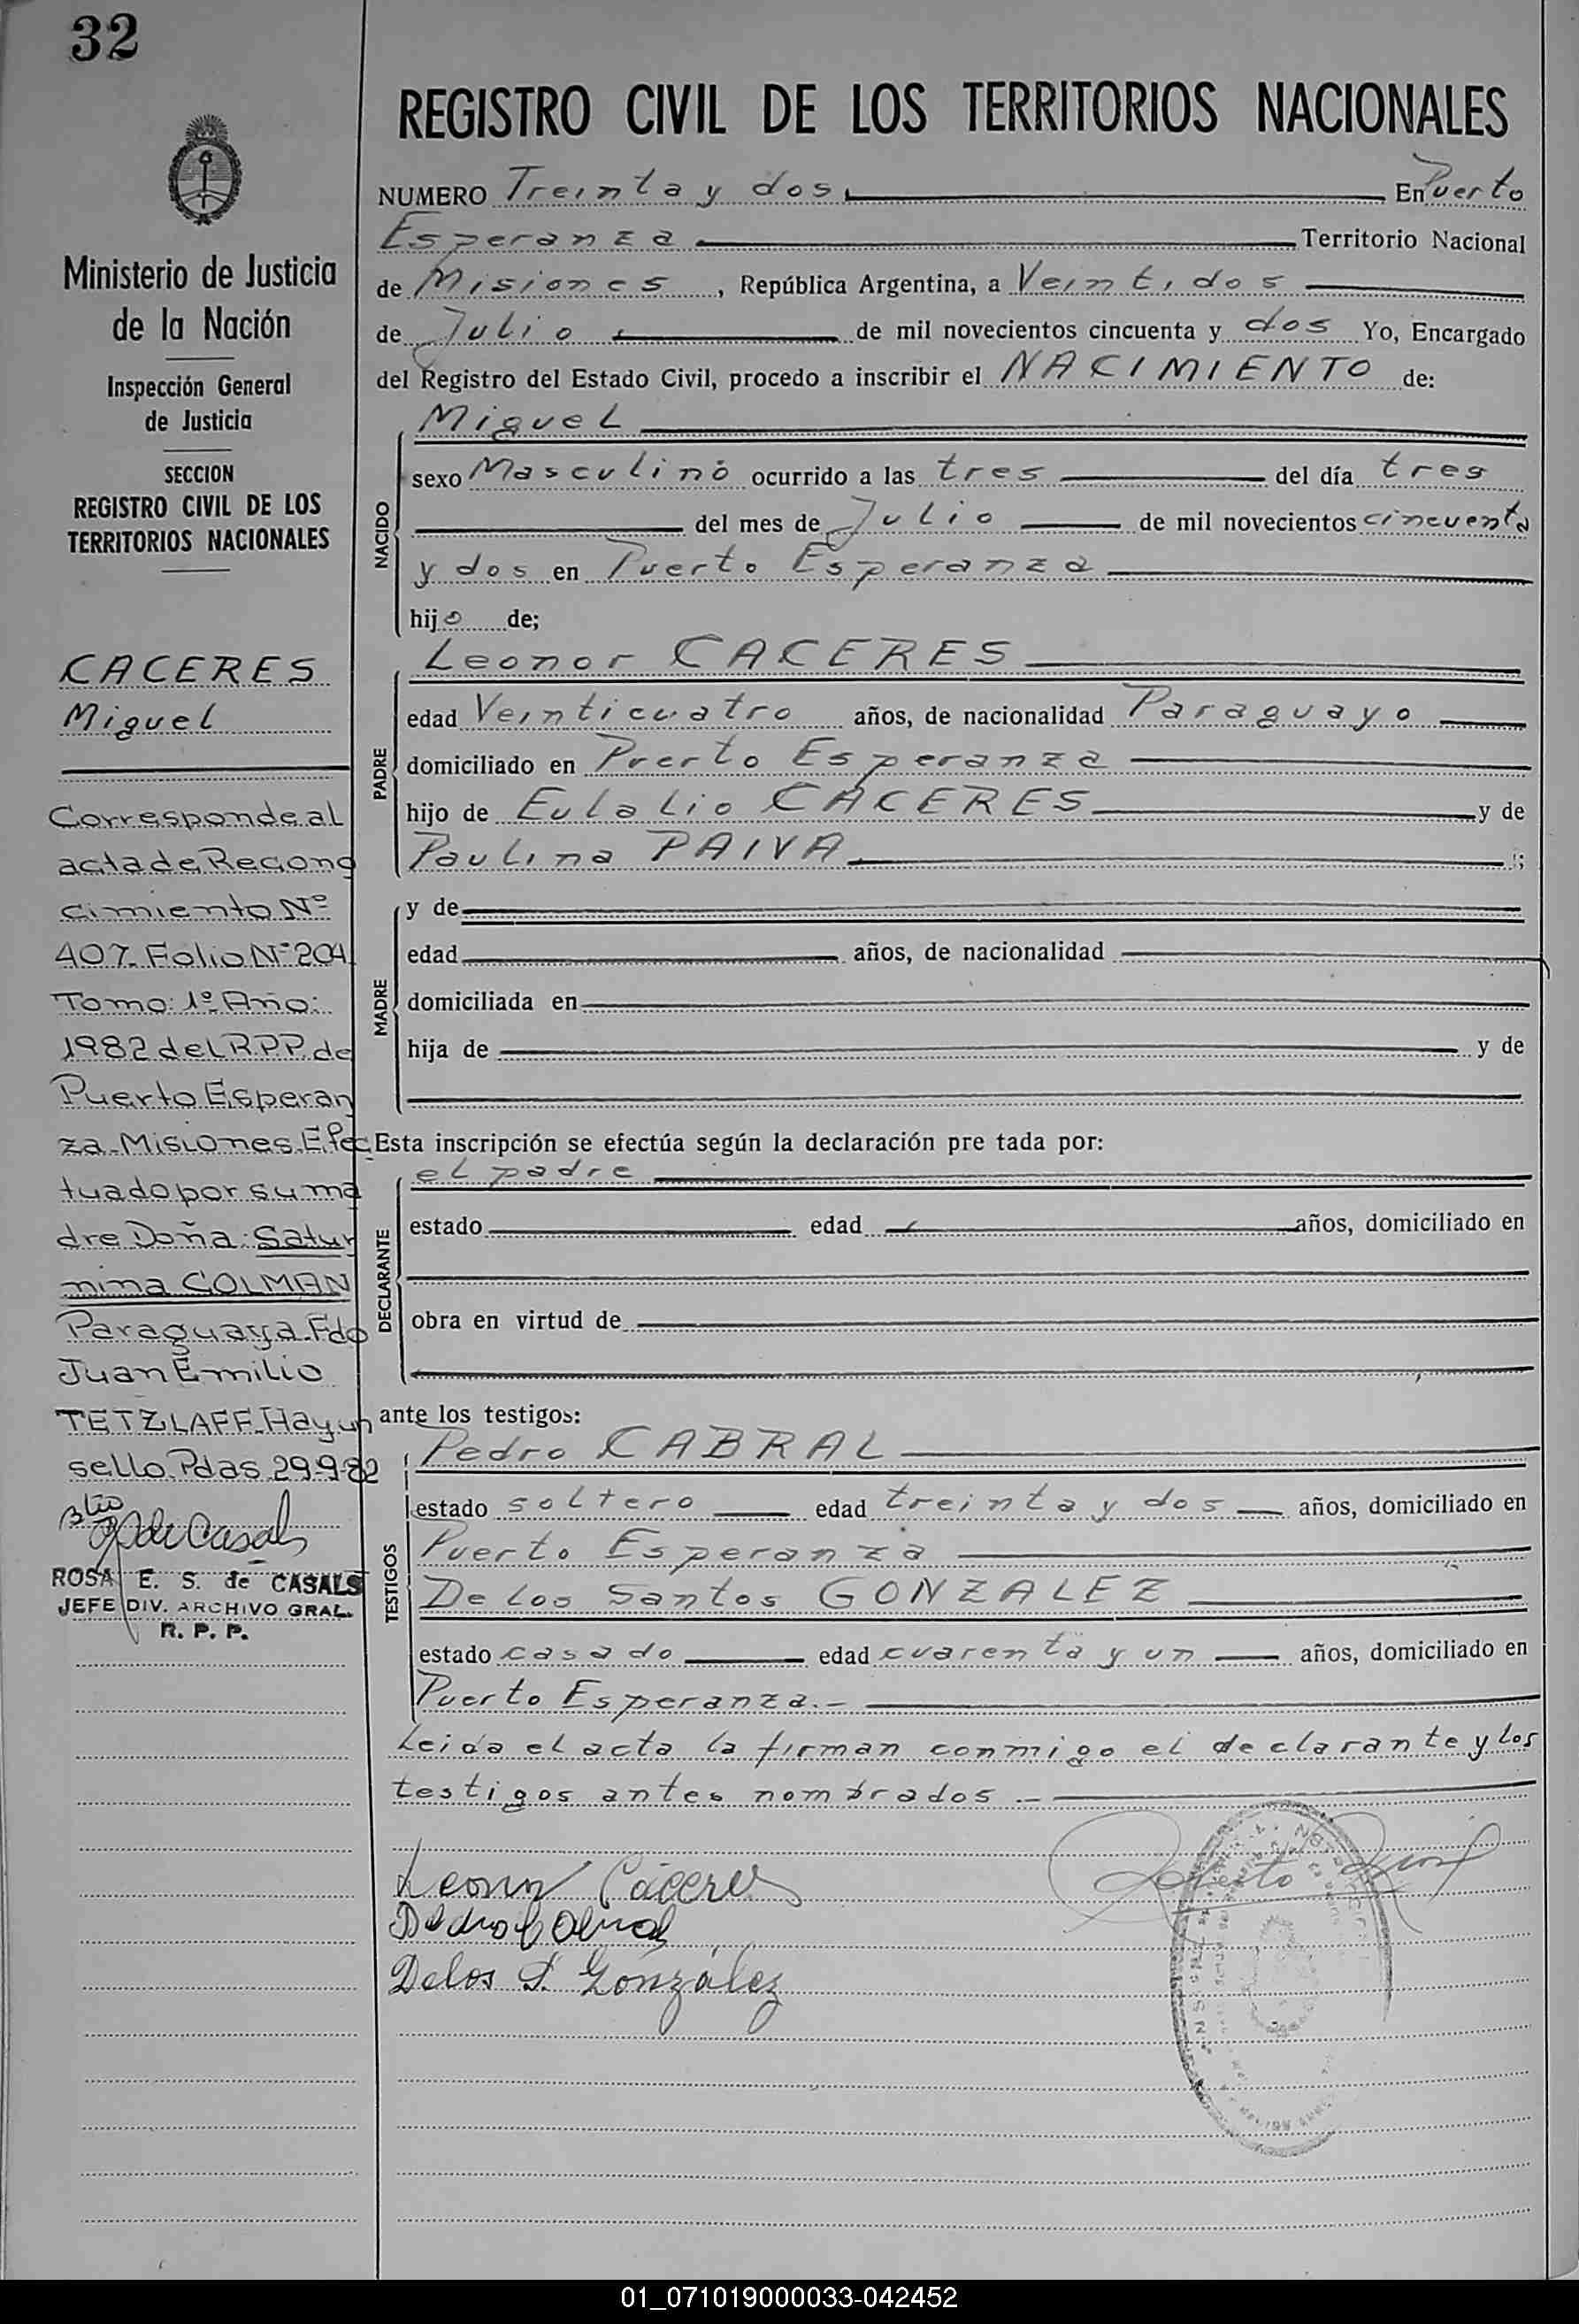 32
REGISTRO CIVIL DE LOS TERRITORIOS NACIONALES
Ministerio de Justicia
de la Nación
Inspección General
de Justicia
SECCION
REGISTRO CIVIL DE LOS
TERRITORIOS NACIONALES
CACERES
Miguel
Corresponde al
acta de Recono
cimiento Nº
407. Folio Nº 204
Tomo: 1º Año:
1982 del R.P.P. de
Puerto Esperan
za-Misiones. Efec
tuado por su ma
dre Doña: Satur
nina COLMAN
Paraguaya. Fdo
Juan Emilio
TETZLAFF. Hay un
sello. Pdas 29-9-82
ROSA E. S. de CASALS
JEFE DIV. ARCHIVO GRAL.
R. P. P.
NUMERO Treinta y dos En Puerto
Esperanza Territorio Nacional
de Misiones, República Argentina, a Veintidos
de Julio de mil novecientos cincuenta y dos Yo, Encargado
del Registro del Estado Civil, procedo a inscribir el NACIMIENTO de:
NACIDO
Miguel
sexo Masculino ocurrido a las tres del día tres
del mes de Julio de mil novecientos cincuenta
y dos en Puerto Esperanza
hijo de;
PADRE
Leonor CACERES
edad Veinticuatro años, de nacionalidad Paraguayo
domiciliado en Puerto Esperanza
hijo de Eulalio CACERES y de
Paulina PAIVA ;
MADRE
y de
edad años, de nacionalidad
domiciliada en
hija de y de
Esta inscripción se efectúa según la declaración pre tada por:
DECLARANTE
el padre
estado edad años, domiciliado en
obra en virtud de
ante los testigos:
TESTIGOS
Pedro CABRAL
estado soltero edad treinta y dos años, domiciliado en
Puerto Esperanza
De los Santos GONZALEZ
estado casado edad cuarenta y un años, domiciliado en
Puerto Esperanza.-
Leida el acta la firman conmigo el declarante y los
testigos antes nombrados.-
Leonor Cáceres
Pedro Cabral
Delos S. González
01_071019000033-042452